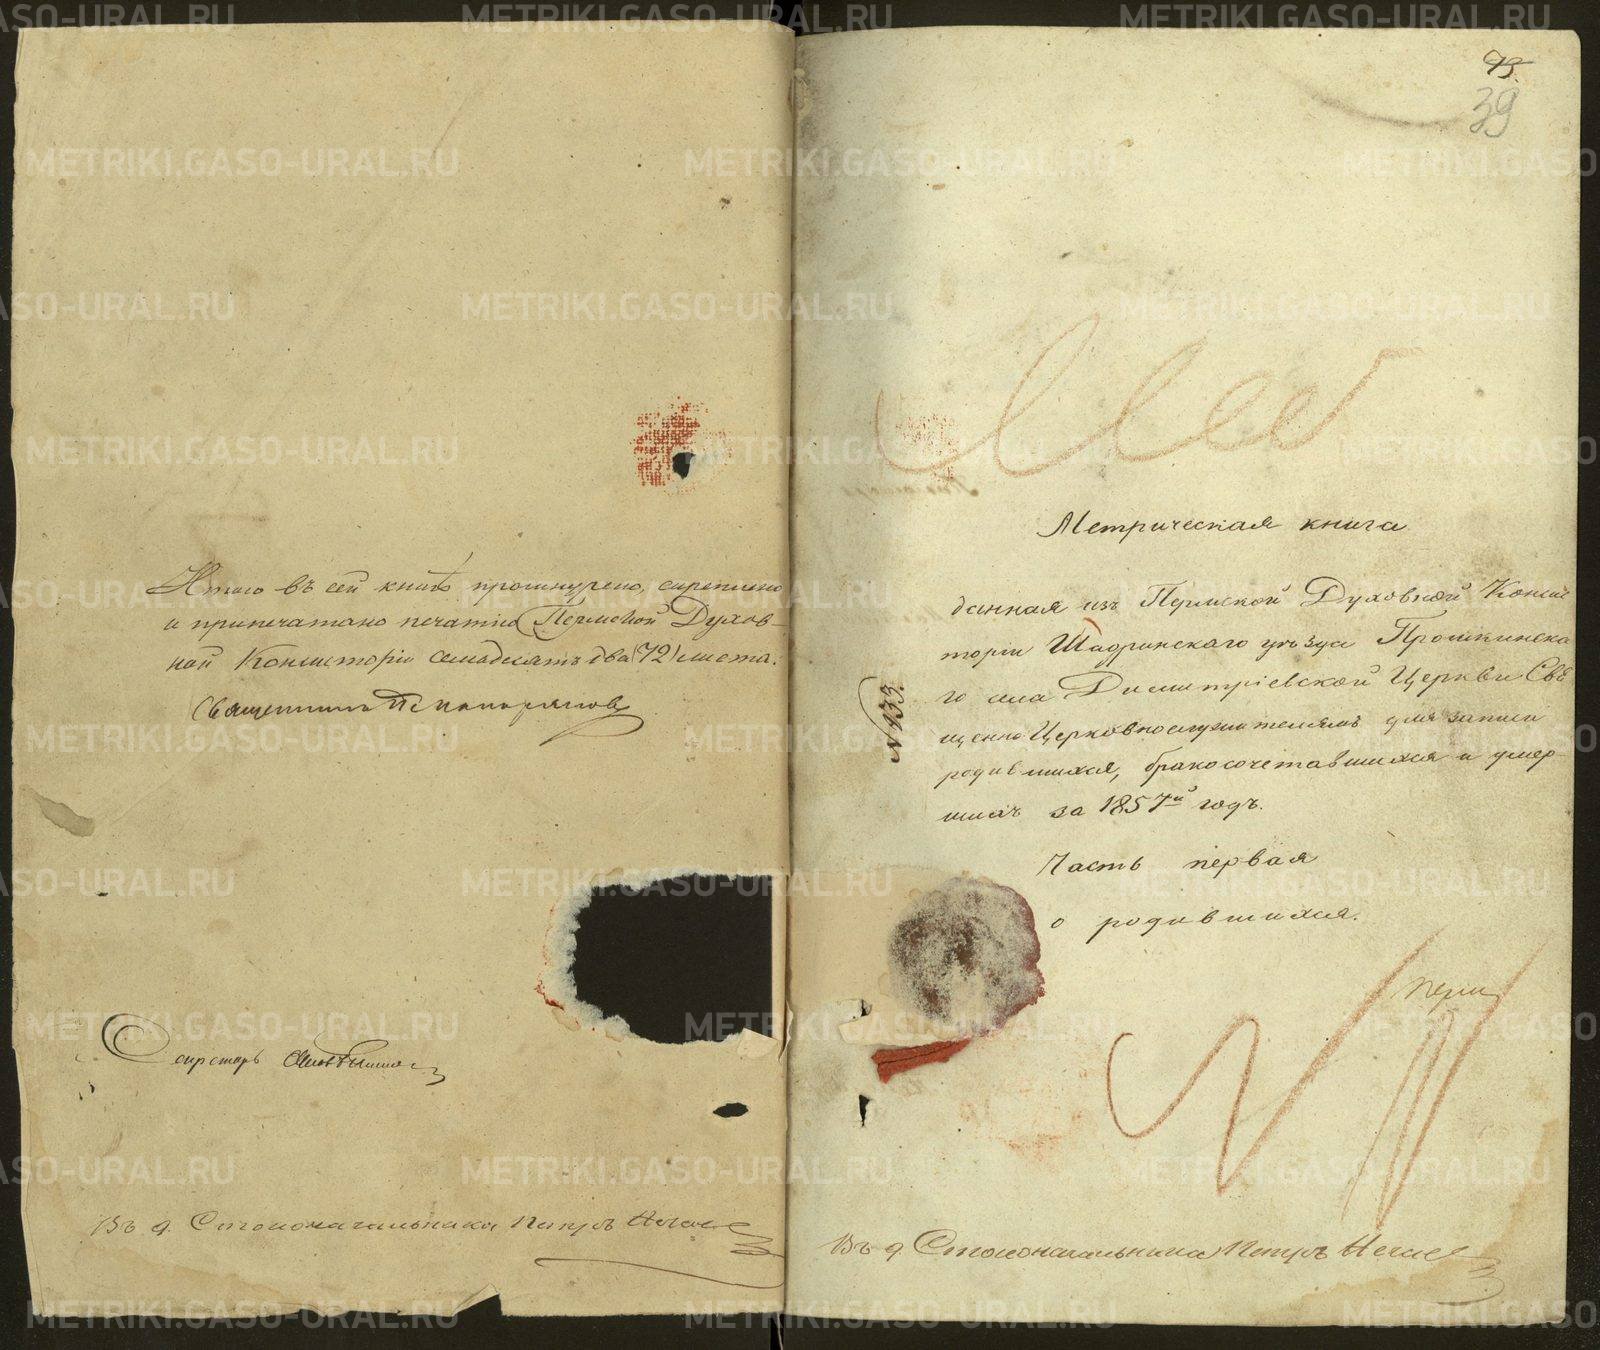 Итого въ сей книгѣ прошнуровано, скреплено
и припечатано печатию Пермской Духов-
ной Консисторіи семьдесятъ два (72) листа.
Священникъ
Секретарь
Въ д. Столоначальника Петръ
73.
39
Метрическая книга
данная изъ Пермской Духовной Консис
торіи Шадринскаго уѣзда Прошкинска
го села Димитріевской Церкви Свя
щенно Церковнослужителямъ для записи
родившихся, бракосочетавшихся и умер-
шихъ за 1857й годъ.
№ 133.
Часть первая
о родившихся.
Перм
Въ д. Столоначальника Петръ
METRIKI.GASO-URAL.RU